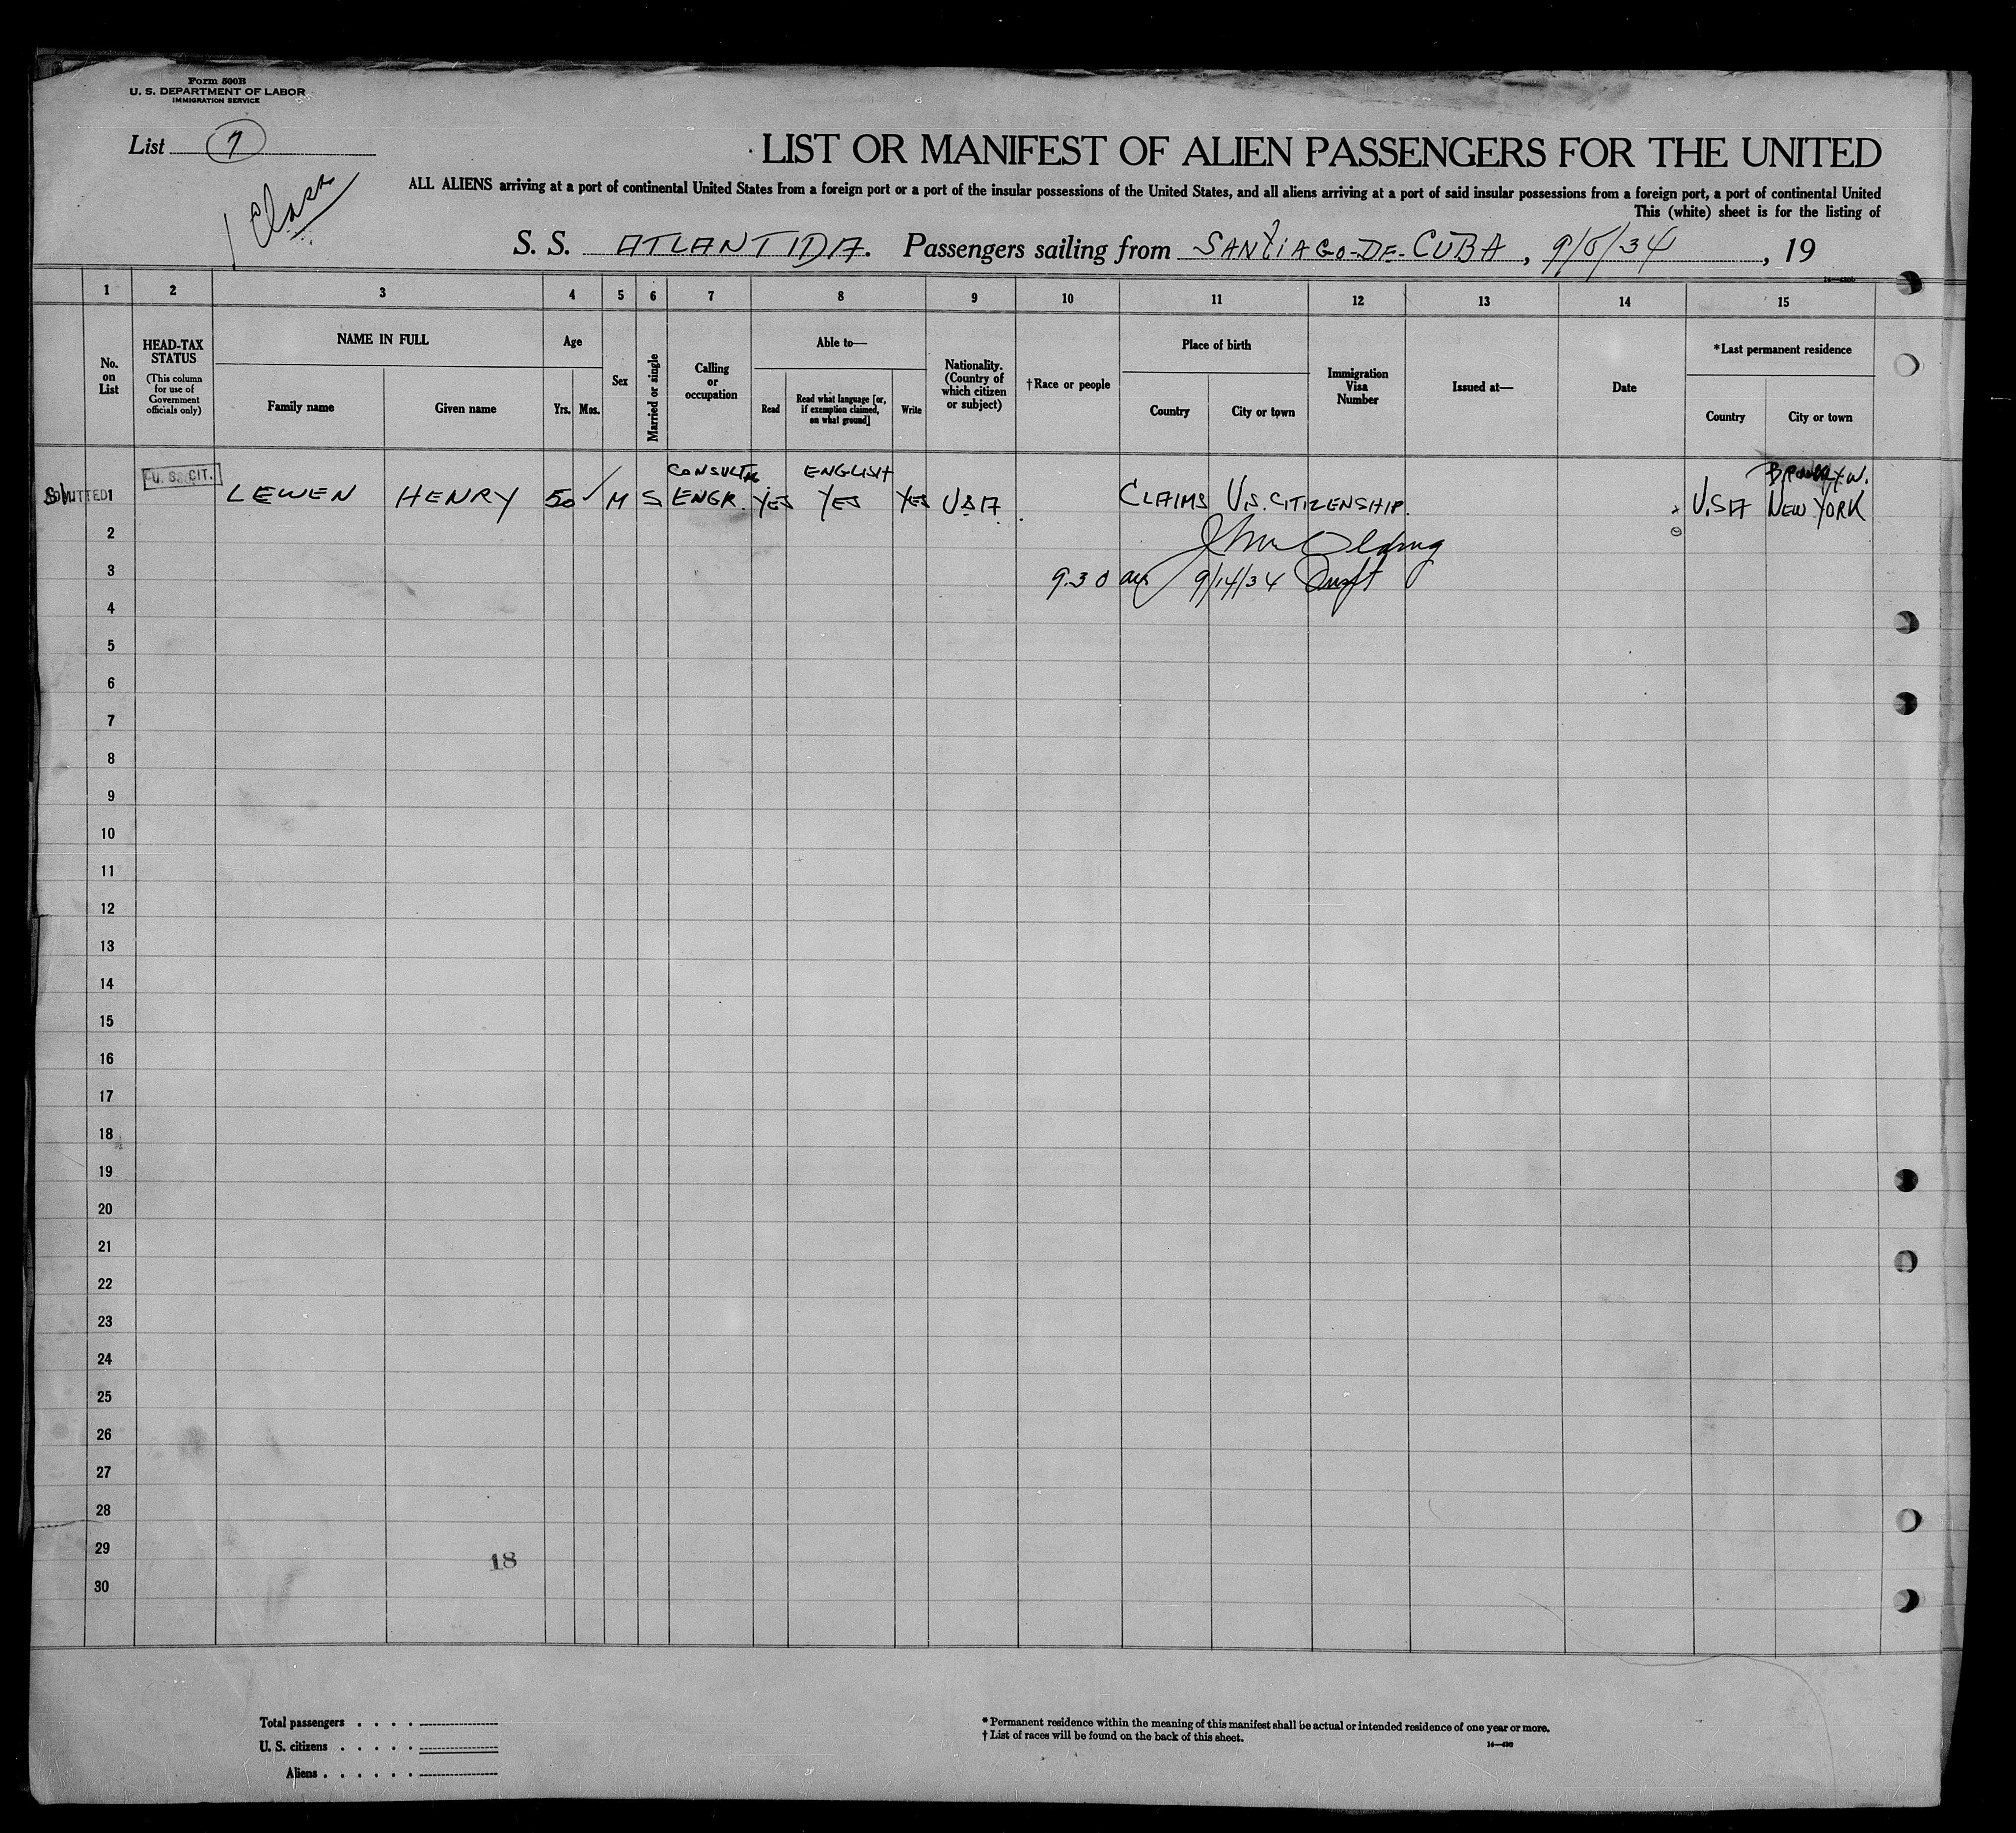 Form 500B
U. S. DEPARTMENT OF LABOR
IMMIGRATION SERVICE
List 7
1 Class
LIST OR MANIFEST OF ALIEN PASSENGERS FOR THE UNITED
ALL ALIENS arriving at a port of continental United States from a foreign port or a port of the insular possessions of the United States, and all aliens arriving at a port of said insular possessions from a foreign port, a port of continental United
This (white) sheet is for the listing of
S. S. ATLANTIDA. Passengers sailing from SANTIAGO-DE-CUBA, 9/8/34, 19
1 2 3 4 5 6 7 8 9 10 11 12 13 14 15
No. on List
HEAD-TAX STATUS
(This column for use of Government officials only)
NAME IN FULL
Family name
Given name
Age
Yrs. Mos.
Sex
Married or single
Calling or occupation
Able to—
Read
Read what language [or, if exemption claimed, on what ground]
Write
Nationality. (Country of which citizen or subject)
†Race or people
Place of birth
Country
City or town
Immigration Visa Number
Issued at—
Date
*Last permanent residence
Country
City or town
1 U. S. CIT. LEWEN HENRY 50 M S CONSULTG ENGR. YES ENGLISH YES YES USA CLAIMS U.S. CITIZENSHIP. U.S.A NEW YORK
2
9.30 am 9/14/34
3
4
5
6
7
8
9
10
11
12
13
14
15
16
17
18
19
20
21
22
23
24
25
26
27
28
29
18
30
Total passengers
U. S. citizens
Aliens
* Permanent residence within the meaning of this manifest shall be actual or intended residence of one year or more.
† List of races will be found on the back of this sheet.
14—430